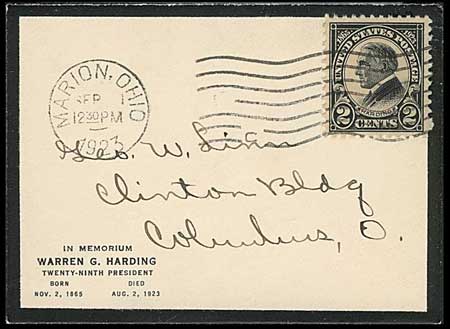 MARION, OHIO
SEP 1
12 30 PM
1923
1865 1923
UNITED STATES POSTAGE
HARDING
2 CENTS 2
Geo. W. Linn
Clinton Bldg
Columbus, O.
IN MEMORIUM
WARREN G. HARDING
TWENTY-NINTH PRESIDENT
BORN DIED
NOV. 2, 1865 AUG. 2, 1923